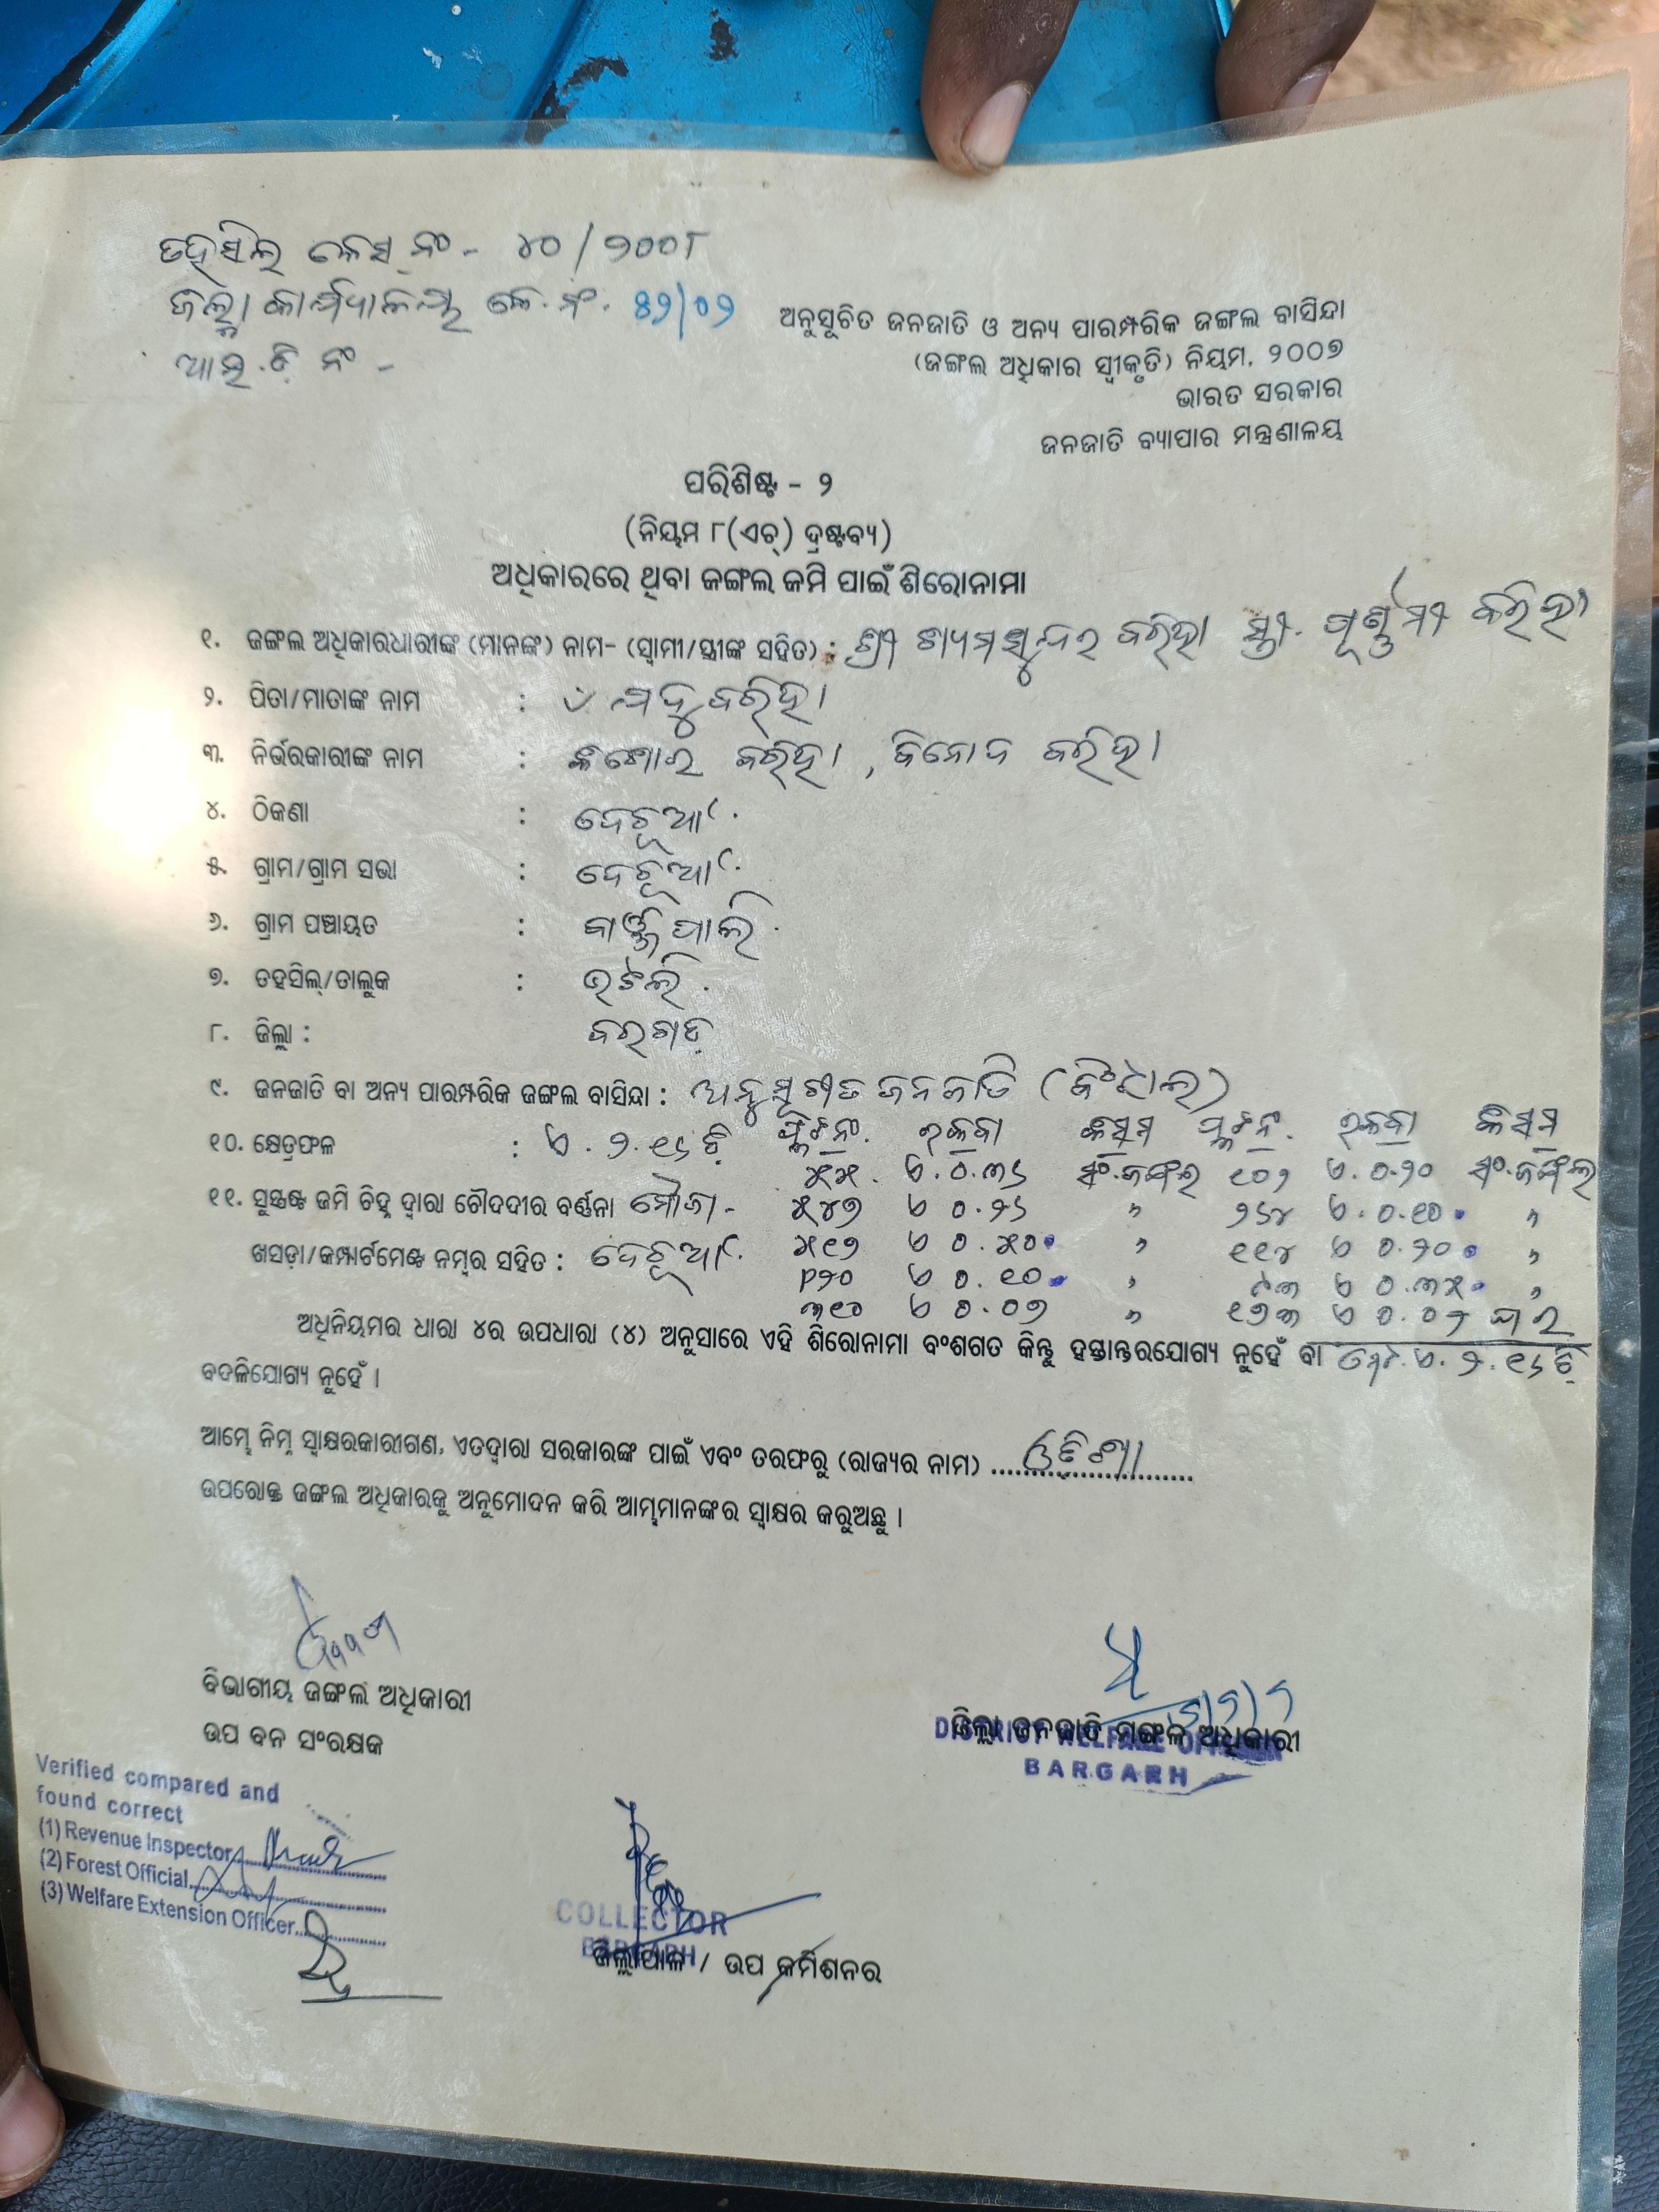 ତହସିଲ କେସ୍ ନଂ - ୪୦/୨୦୦୮
ଜିଲ୍ଲା କାର୍ଯ୍ୟାଳୟ କେ. ନଂ. ୫୨/୦୨
ଆଇ.ଡ଼ି ନଂ -
ଅନୁସୂଚିତ ଜନଜାତି ଓ ଅନ୍ୟ ପାରମ୍ପରିକ ଜଙ୍ଗଲ ବାସିନ୍ଦା
(ଜଙ୍ଗଲ ଅଧିକାର ସ୍ୱୀକୃତି) ନିୟମ, ୨୦୦୭
ଭାରତ ସରକାର
ଜନଜାତି ବ୍ୟାପାର ମନ୍ତ୍ରଣାଳୟ
ପରିଶିଷ୍ଟ - ୨
(ନିୟମ ୮(ଏଚ୍) ଦ୍ରଷ୍ଟବ୍ୟ)
ଅଧିକାରରେ ଥିବା ଜଙ୍ଗଲ ଜମି ପାଇଁ ଶିରୋନାମା
୧. ଜଙ୍ଗଲ ଅଧିକାରଧାରୀଙ୍କ (ମାନଙ୍କ) ନାମ- (ସ୍ୱାମୀ/ସ୍ତ୍ରୀଙ୍କ ସହିତ) : ଶ୍ରୀ ଶ୍ୟାମସୁନ୍ଦର ବରିହା ସ୍ତ୍ରୀ. ପୂର୍ଣ୍ଣମୀ ବରିହା
୨. ପିତା/ମାତାଙ୍କ ନାମ : ବରିହା
୩. ନିର୍ଭରକାରୀଙ୍କ ନାମ : କିଶୋର ବରିହା, ବିନୋଦ ବରିହା
୪. ଠିକଣା : ଦେଚୂଆଁ.
୫. ଗ୍ରାମ/ଗ୍ରାମ ସଭା : ଦେଚୂଆଁ.
୬. ଗ୍ରାମ ପଞ୍ଚାୟତ :
୭. ତହସିଲ୍/ତାଲୁକ : ଭଟଲି.
୮. ଜିଲ୍ଲା : ବରଗଡ଼
୯. ଜନଜାତି ବା ଅନ୍ୟ ପାରମ୍ପରିକ ଜଙ୍ଗଲ ବାସିନ୍ଦା : ଅନୁସୂଚୀତ ଜନଜାତି (ବିଂଝାଲ)
୧୦. କ୍ଷେତ୍ରଫଳ : ଏ. ୨.୧୬ ଡ଼ି ପ୍ଲଟନଂ. ରକବା କିସମ ପ୍ଲଟନଂ. ରକବା କିସମ
୫୫. ଏ.୦.୩୬ ସଂ.ଜଙ୍ଗଲ ୧୦୨ ଏ.୦.୨୦ ସଂ.ଜଙ୍ଗଲ
୧୧. ସୁସ୍ପଷ୍ଟ ଜମି ଚିହ୍ନ ଦ୍ୱାରା ଚୌଦଦୀର ବର୍ଣ୍ଣନା ମୌଜା - ୫୪୭ ଏ ୦.୨୬ " ୨୬୪ ଏ.୦.୧୦ "
ଖସଡ଼ା/କମ୍ପାର୍ଟମେଣ୍ଟ ନମ୍ବର ସହିତ : ଦେଚୂଆଁ. ୫୧୭ ଏ ୦.୫୦ " ୧୧୪ ଏ ୦.୨୦ "
ଏ ୦.୧୦ " ଏ ୦.୩୫ "
୩୧୦ ଏ ୦.୦୭ " ୧୭୩ ଏ ୦.୦୨
ଅଧିନିୟମର ଧାରା ୪ର ଉପଧାରା (୪) ଅନୁସାରେ ଏହି ଶିରୋନାମା ବଂଶଗତ କିନ୍ତୁ ହସ୍ତାନ୍ତରଯୋଗ୍ୟ ନୁହେଁ ବା ଏ. ୨.୧୬ ଡ଼ି
ବଦଳିଯୋଗ୍ୟ ନୁହେଁ ।
ଆମ୍ଭେ ନିମ୍ନ ସ୍ୱାକ୍ଷରକାରୀଗଣ, ଏତଦ୍ୱାରା ସରକାରଙ୍କ ପାଇଁ ଏବଂ ତରଫରୁ (ରାଜ୍ୟର ନାମ) ଓଡ଼ିଶା
ଉପରୋକ୍ତ ଜଙ୍ଗଲ ଅଧିକାରକୁ ଅନୁମୋଦନ କରି ଆମ୍ଭମାନଙ୍କର ସ୍ୱାକ୍ଷର କରୁଅଛୁ ।
ବିଭାଗୀୟ ଜଙ୍ଗଲ ଅଧିକାରୀ
ଉପ ବନ ସଂରକ୍ଷକ
ଜିଲ୍ଲା ଜନଜାତି ମଙ୍ଗଳ ଅଧିକାରୀ
DISTRICT WELFARE OFFICER
BARGARH
Verified compared and
found correct
(1) Revenue Inspector
(2) Forest Official
(3) Welfare Extension Officer
COLLECTOR
BARGARH
ଜିଲ୍ଲାପାଳ / ଉପ କମିଶନର